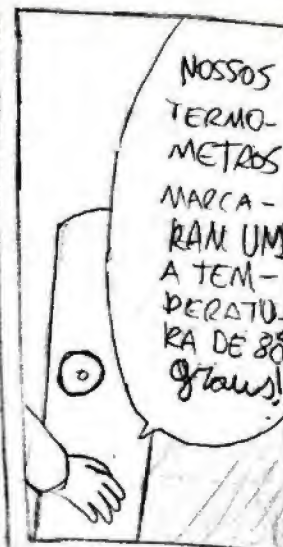 NOSSOS
TERMO-
METROS
MARCA-
RAM UM
A TEM-
PERATU-
RA DE
graus!